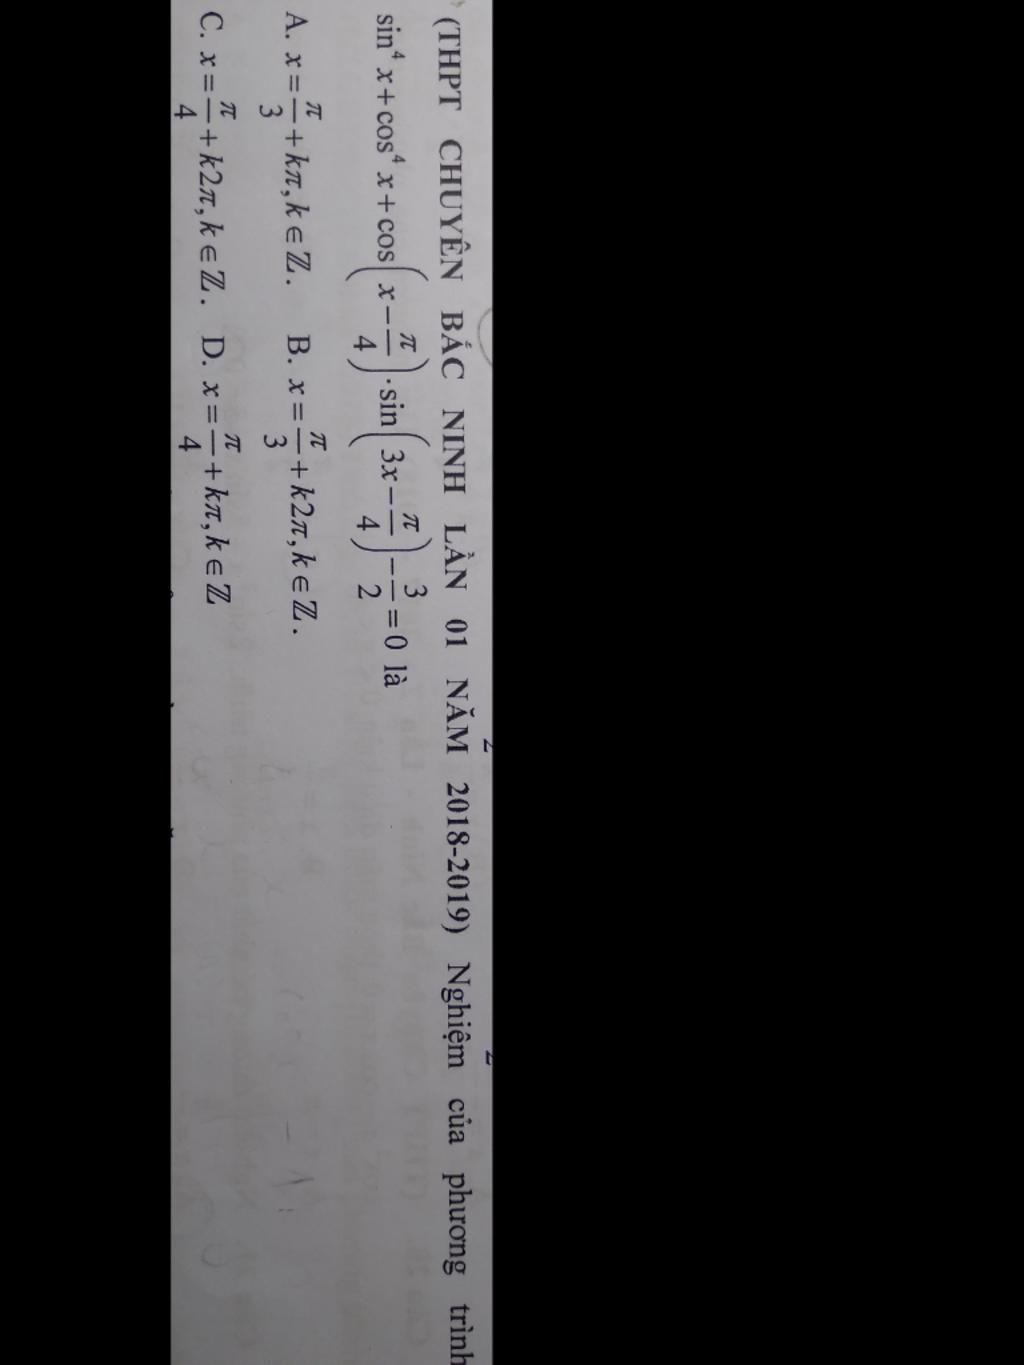 (THPT CHUYÊN BẮC NINH LẦN 01 NĂM 2018-2019) Nghiệm của phương trình
sin⁴ x + cos⁴ x + cos(x − π/4).sin(3x − π/4) − 3/2 = 0 là
A. x = π/3 + kπ, k ∈ ℤ. B. x = π/3 + k2π, k ∈ ℤ.
C. x = π/4 + k2π, k ∈ ℤ. D. x = π/4 + kπ, k ∈ ℤ